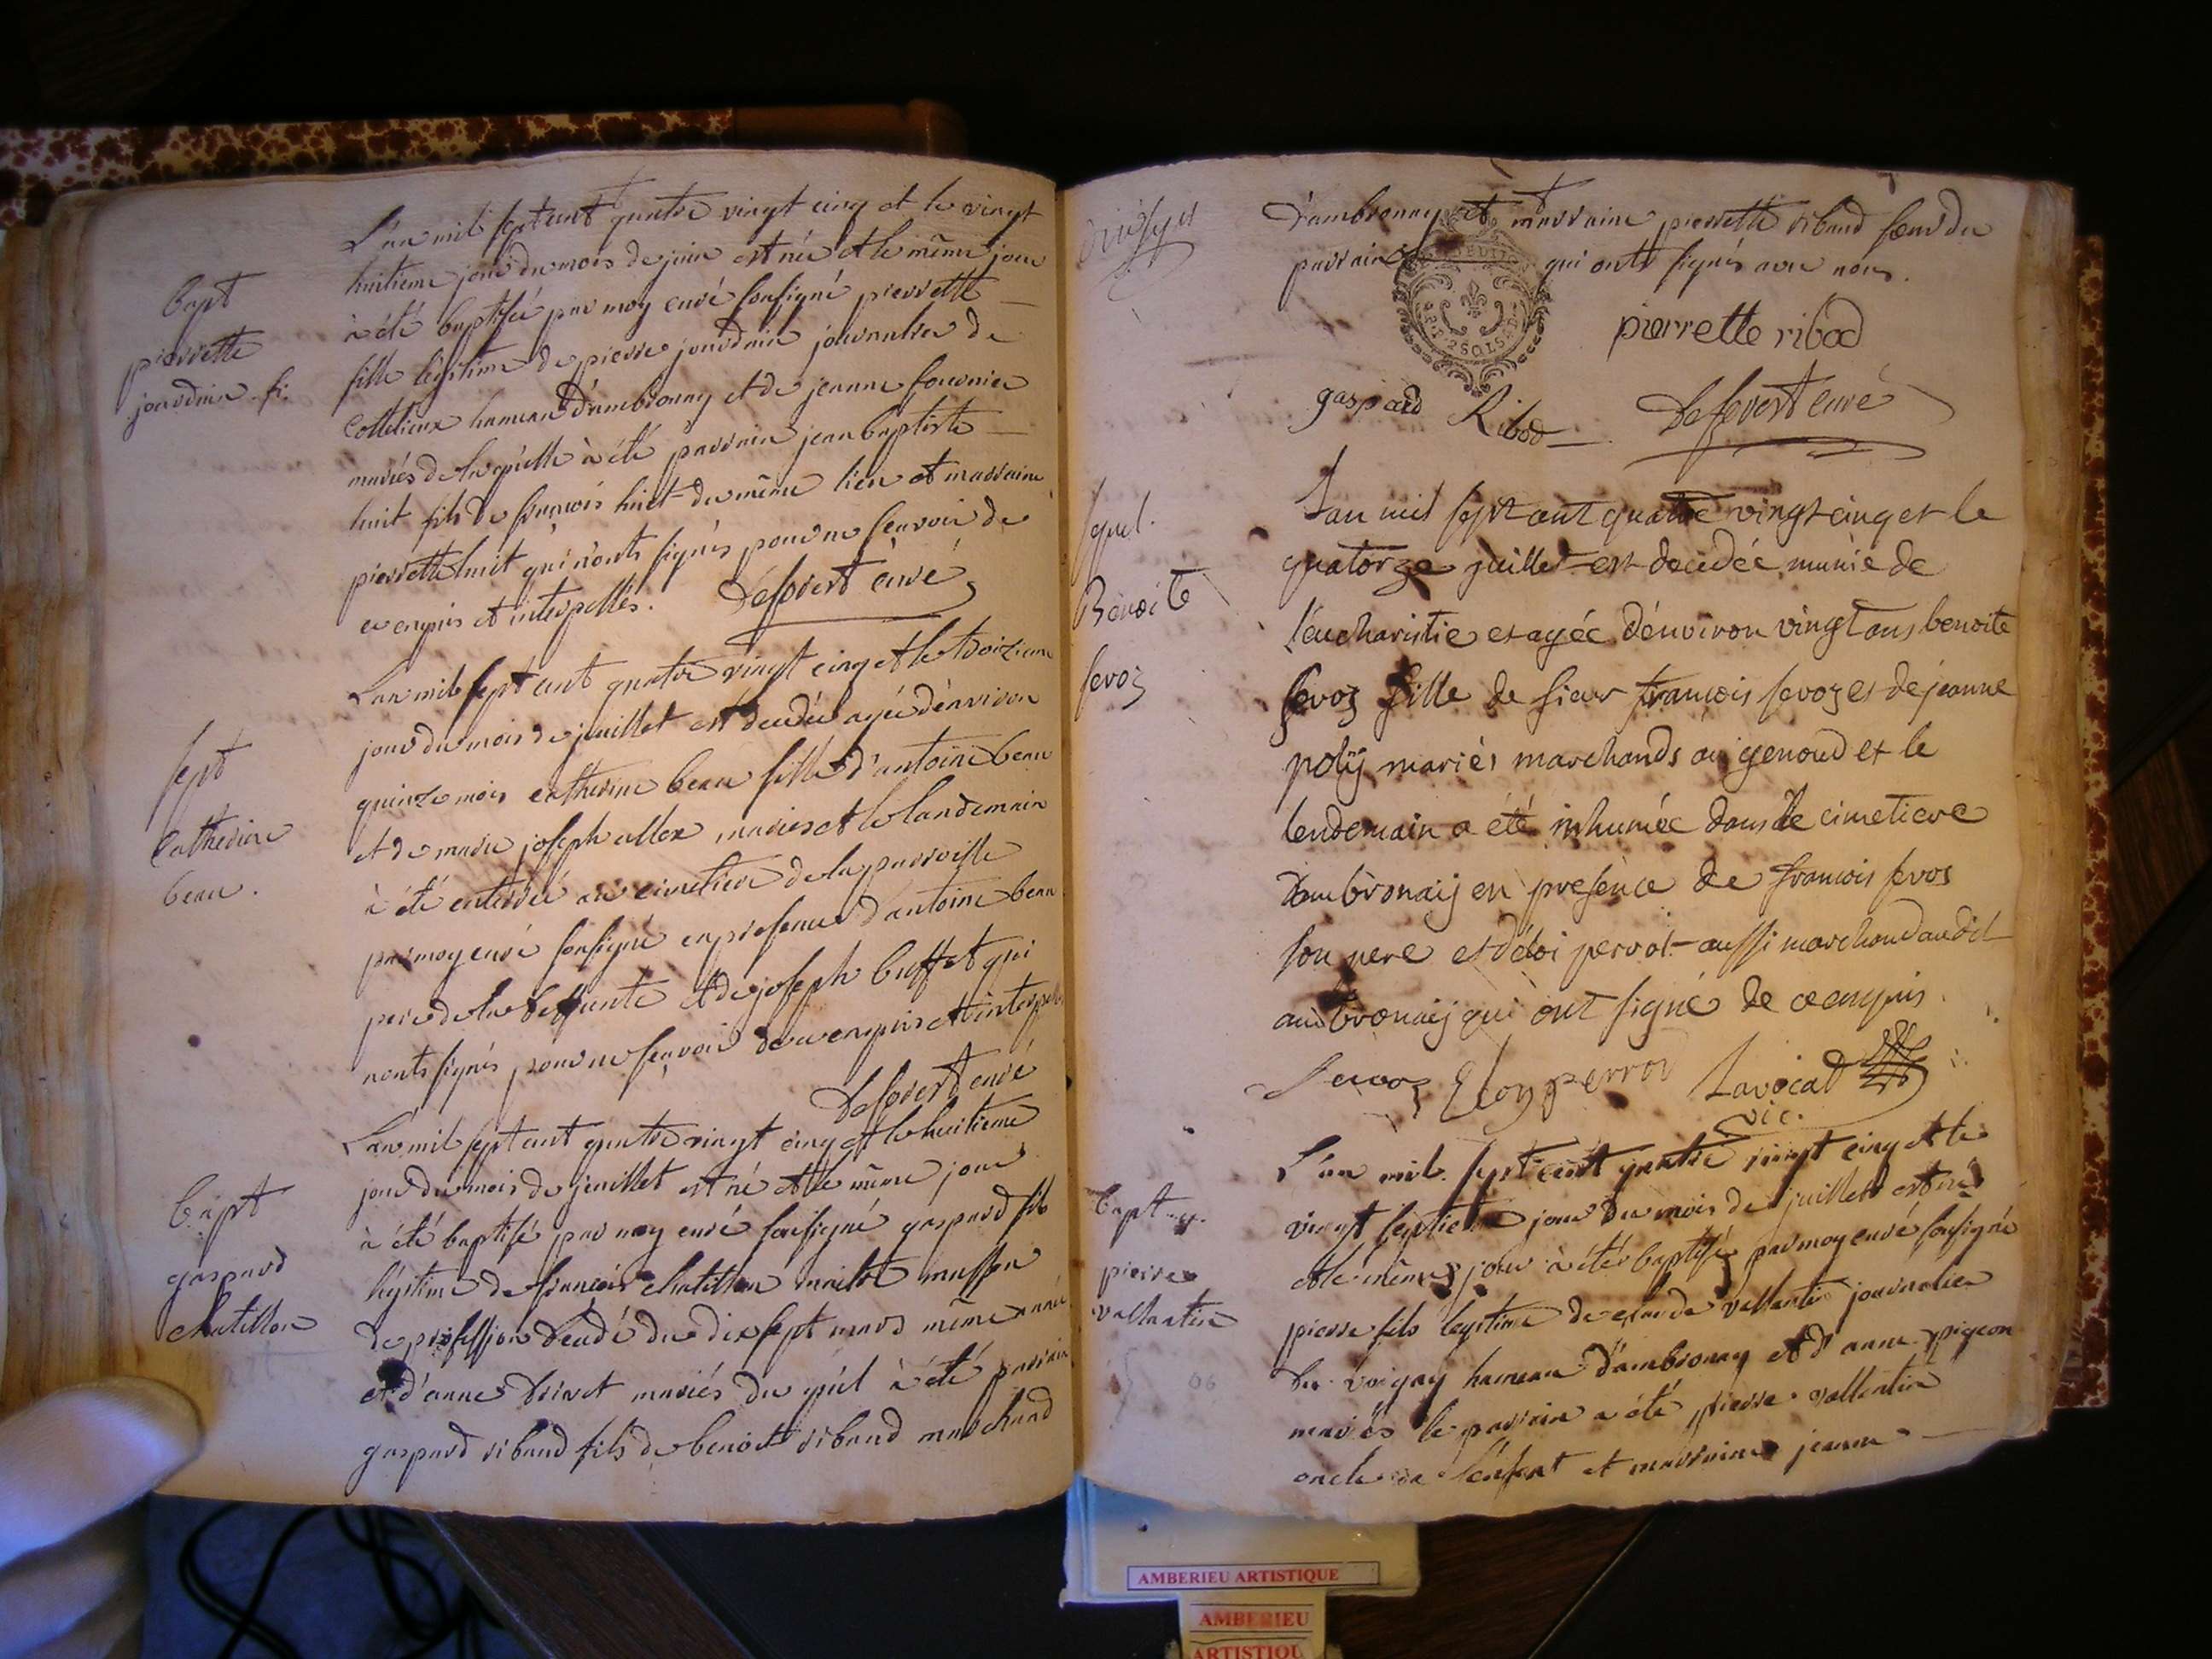 L'an mil sept cent quatre vingt cinq et le vingt
huitieme jour du mois de juin est née et le même jour
à été baptisée par moy curé soussigné pierrette
fille legitime de pierre jourdain journalier de
Cottelieux hameau d'ambronay et de jeanne fournier
mariés de laquelle à été parrain jean baptiste
huit fils de françois huit du même lieu et marraine
pierrette huit qui n'onts signés pour ne sçavoir de
ce enquis et interpellés. Deforest curé
Bapt
pierrette
jourdain fi.
L'an mil sept cent quatre vingt cinq et le troizieme
jour du mois de juillet est decedée agée d'environ
quinze mois catherine beau fille d'antoine beau
et de marie joseph allex mariés et le landemain
à été enterrée au cimetiere de la parroisse
par moy curé soussigné en presence d'antoine beau
pere de la deffunte et de joseph buffet qui
n'onts signés pour ne sçavoir de ce enquis et interpellés
Deforest curé
sept
Catherine
beau.
L'an mil sept cent quatre vingt cinq et le huitieme
jour du mois de juillet est né et le même jour
à été baptisé par moy curé soussigné gaspard fils
legitime de françois chatillon maitre masson
de profession decedé du dix sept mars même année
et d'anne drivet mariés du quel à été parrain
gaspard riband fils de benoit riband marchand
Bapt
gaspard
chatillon
d'ambronay et marraine pierrette riband sœur du
parrain qui onts signés avec nous.
2 SOLS
pierrette ribod
gaspard Ribod Deforest curé
L'an mil sept cent quatre vingt cinq et le
quatorze juillet est decedée munie de
l'eucharistie et agée d'environ vingt ans benoite
sevoz fille de sieur francois sevoz et de jeanne
polÿ mariés marchands au genoud et le
lendemain a été inhumée dans le cimetiere
d'ambronaij en presence de francois sevos
son pere et d'eloi perrot aussi marchand audit
ambronaij qui ont signé de ce enquis
Sevoz Eloy perrot Lavocat
vic.
sepul.
Benoite
sevoz
L'an mil sept cent quatre vingt cinq et le
vingt septieme jour du mois de juillet est né
et le même jour à été baptisé par moy curé soussigné
pierre fils legitime de claude vallentin journalier
du vorgay hameau d'ambronay et d'anne pigeon
mariés le parrain a été pierre vallentin
oncle de l'enfant et marraine jeanne
Bapt
pierre
vallentin
AMBERIEU ARTISTIQUE
AMBERIEU
ARTISTIQU